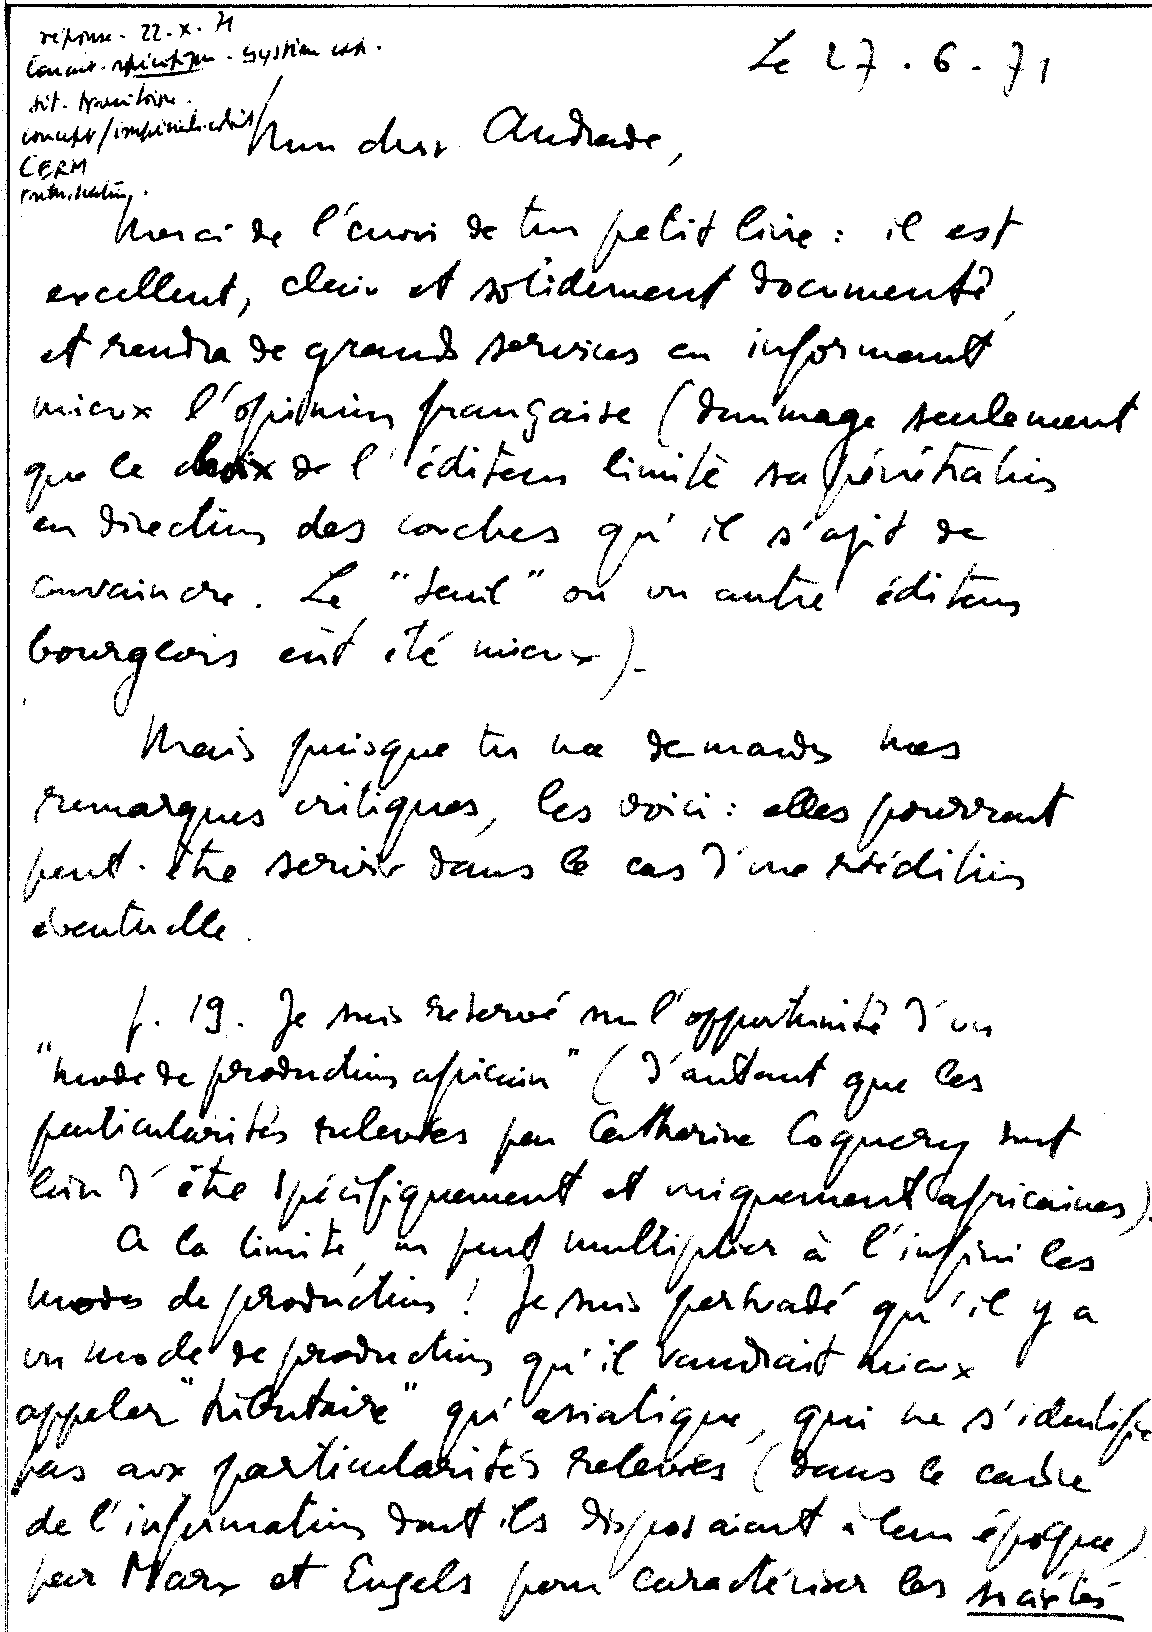 réponse - 22.x.71
Le 27.6.71
sit. transitoire.
concept/
CERM
Mon cher Andrade,
Merci de l'envoi de ton petit livre : il est
excellent, clair et solidement documenté,
et rendra de grands services en informant
mieux l'opinion française (dommage seulement
que le choix de l'éditeur limite sa pénétration
en direction des couches qu'il s'agit de
convaincre. Le "Seuil" ou un autre éditeur
bourgeois eût été mieux).
Mais puisque tu me demandes mes
remarques critiques, les voici : elles pourront
peut-être servir dans le cas d'une réédition
éventuelle.
p. 19. Je suis réservé sur l'opportunité d'un
"mode de production africain" (d'autant que les
particularités relevées par Catherine Coquery sont
loin d'être spécifiquement et uniquement africaines).
A la limite, on peut multiplier à l'infini les
modes de production ! Je suis persuadé qu'il y a
un mode de production qu'il vaudrait mieux
appeler "tributaire" qu'asiatique, qui ne s'identifie
pas aux particularités relevées (dans le cadre
de l'information dont ils disposaient à leur époque)
par Marx et Engels pour caractériser les sociétés